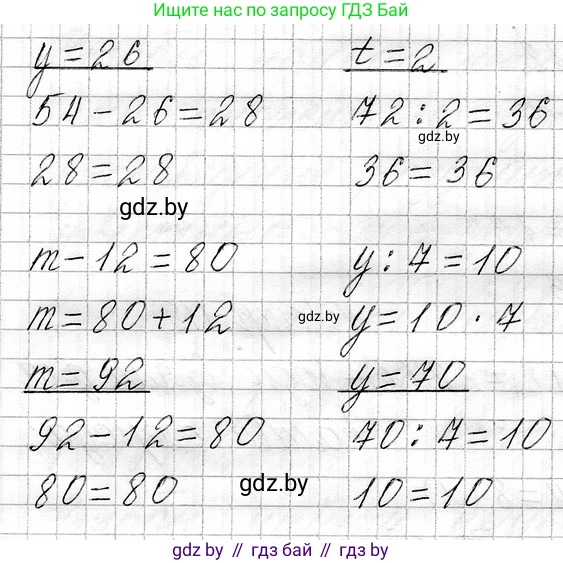 Ищите нас по запросу ГДЗ Бай
y = 26
54 - 26 = 28
28 = 28
gdz.by
m - 12 = 80
m = 80 + 12
m = 92
92 - 12 = 80
80 = 80
gdz.by
t = 2
72 : 2 = 36
gdz.by
36 = 36
y : 7 = 10
gdz.by
y = 10 · 7
y = 70
70 : 7 = 10
10 = 10
gdz.by // гдз бай // gdz.by